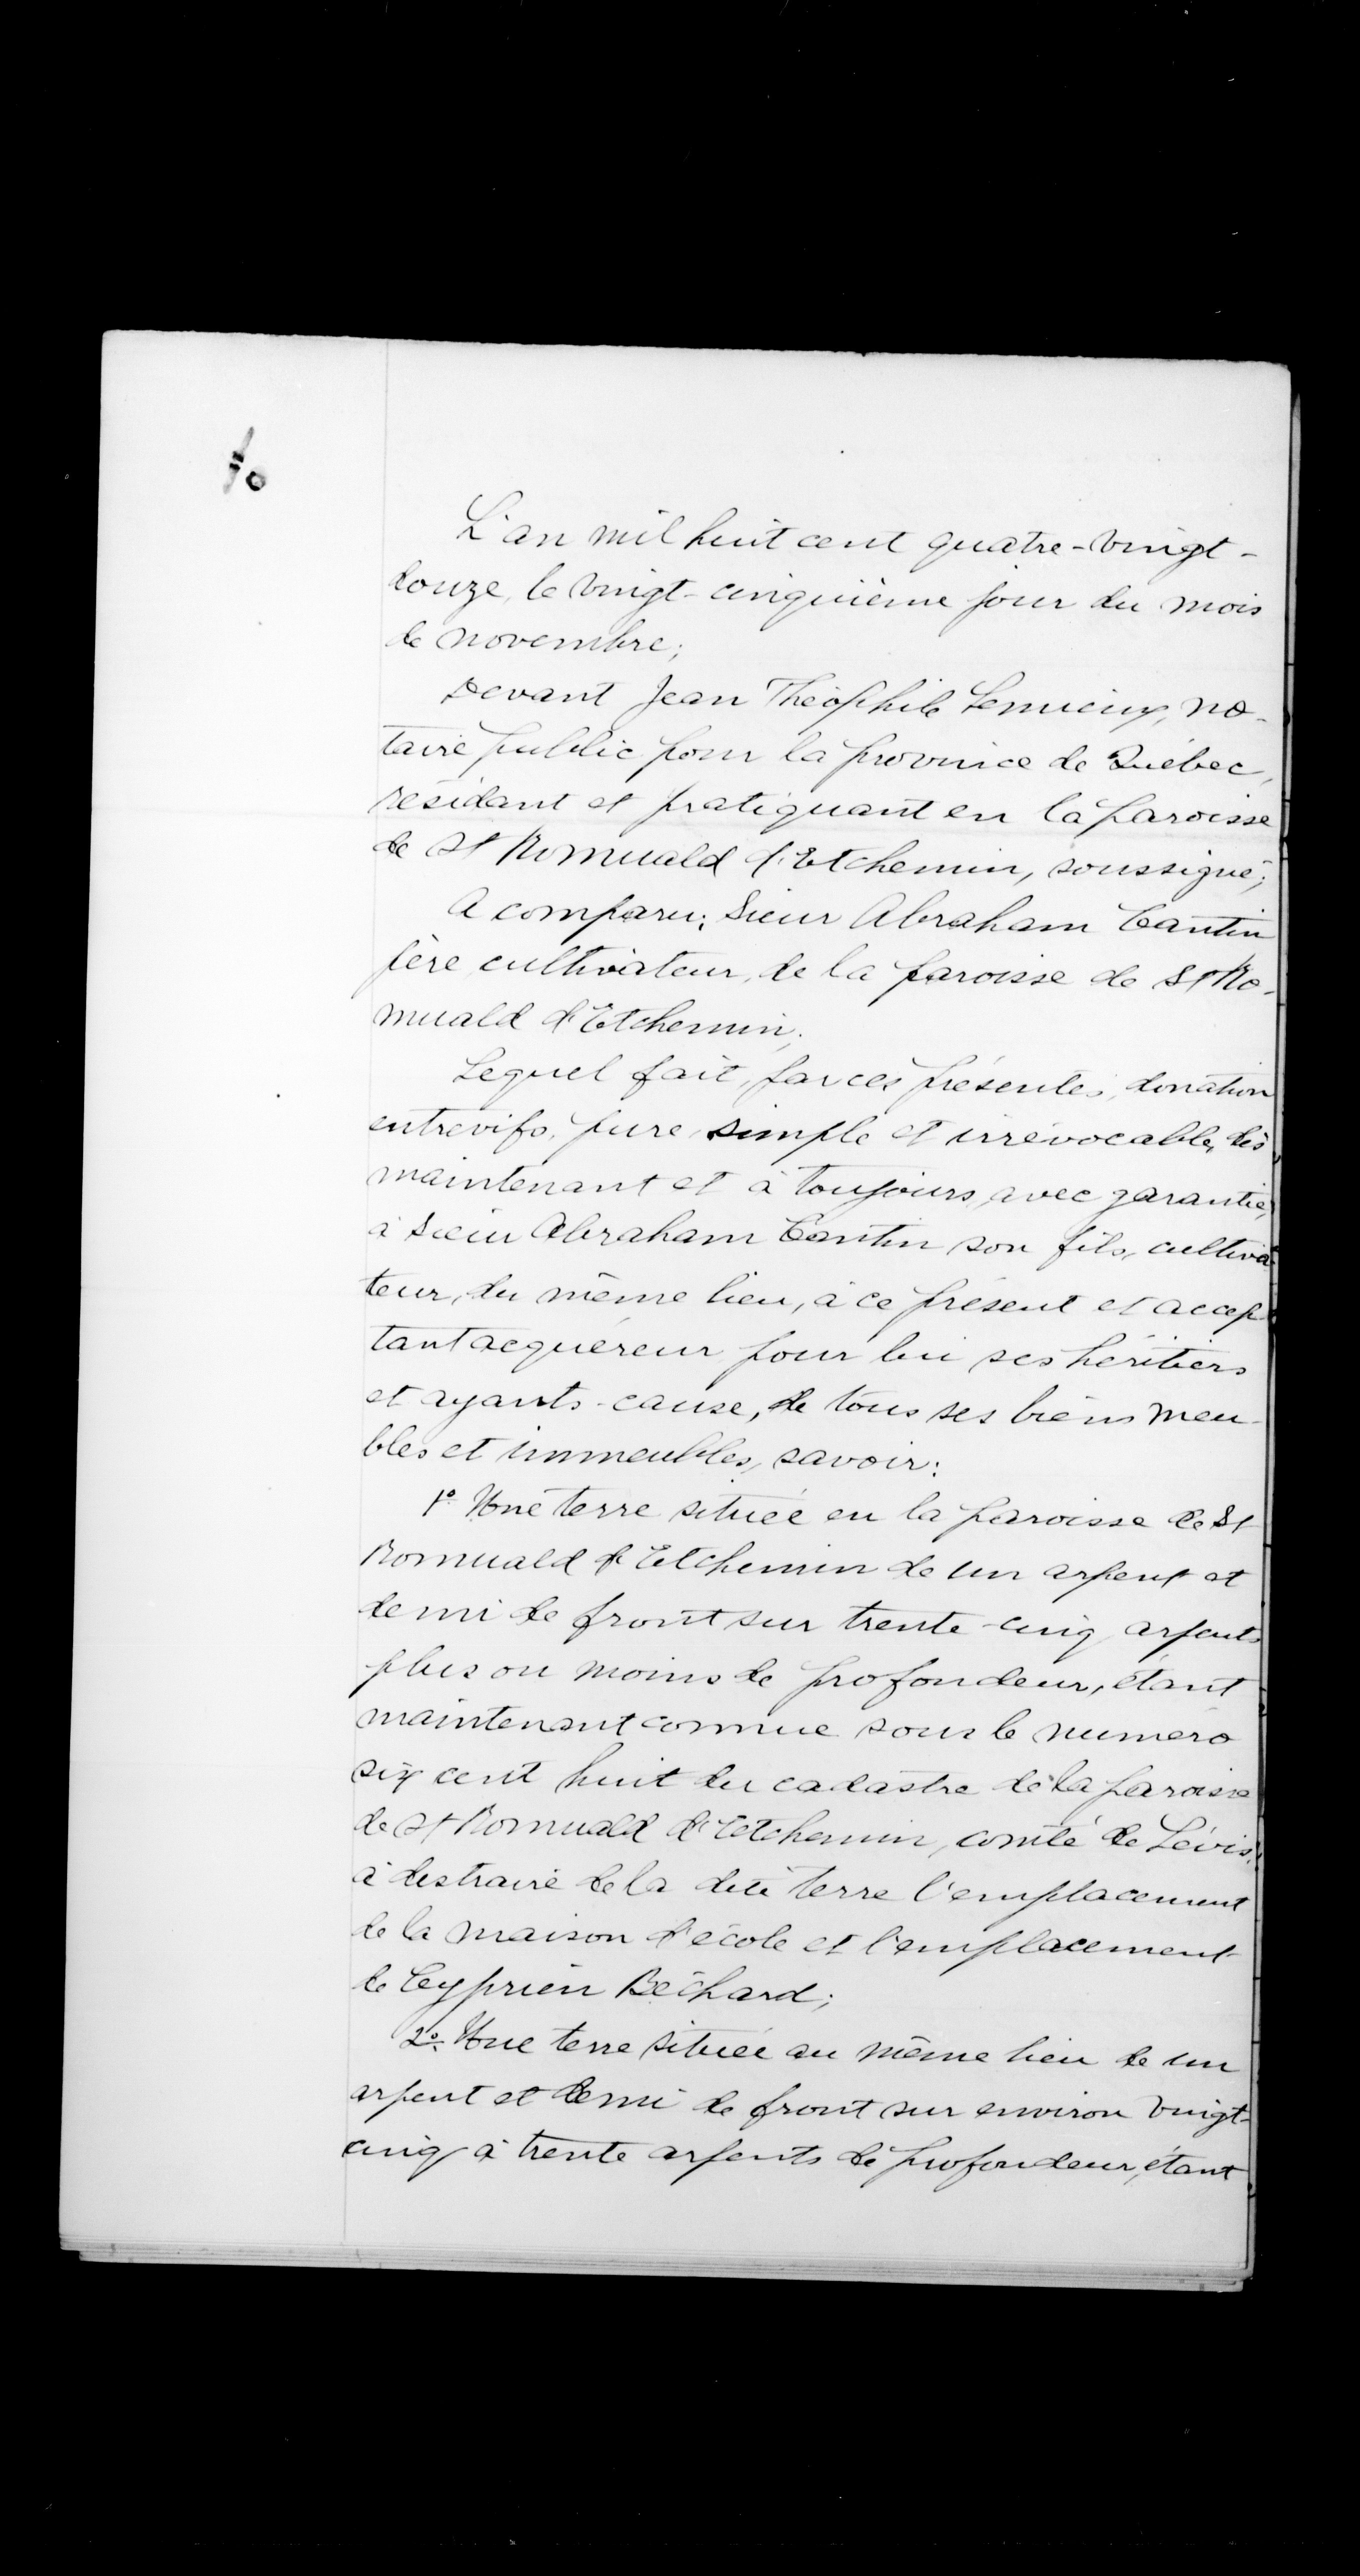 L'an mil huit cent quatre-vingt-
douze, le vingt-cinquième jour du mois
de novembre;
Devant Jean Théophile Lemieux, no-
taire public pour la province de Québec,
résidant et pratiquant en la paroisse
de St Romuald d'Etchemin, soussigné;
A comparu: Sieur Abraham Cantin
père cultivateur, de la paroisse de St Ro-
muald d'Etchemin;
Lequel fait, par ces présentes, donation
entrevifs, pure, simple et irrévocable, dès
maintenant et à toujours, avec garantie,
à Sieur Abraham Cantin son fils, cultiva
teur, du même lieu, à ce présent et accep-
tant acquéreur pour lui ses héritiers
et ayants-cause, de tous ses biens meu-
bles et immeubles, savoir:
1º Une terre située en la paroisse de St
Romuald d'Etchemin de un arpent et
demi de front sur trente-cinq arpents
plus ou moins de profondeur, étant
maintenant connue sous le numéro
six cent huit du cadastre de la paroisse
de St Romuald d'Etchemin, comté de Lévis,
à destraire de la dite terre l'emplacement
de la maison d'école et l'emplacement
de Cyprien Béchard;
2º. Une terre située au même lieu de un
arpent et demi de front sur environ vingt-
cinq à trente arpents de profondeur, étant